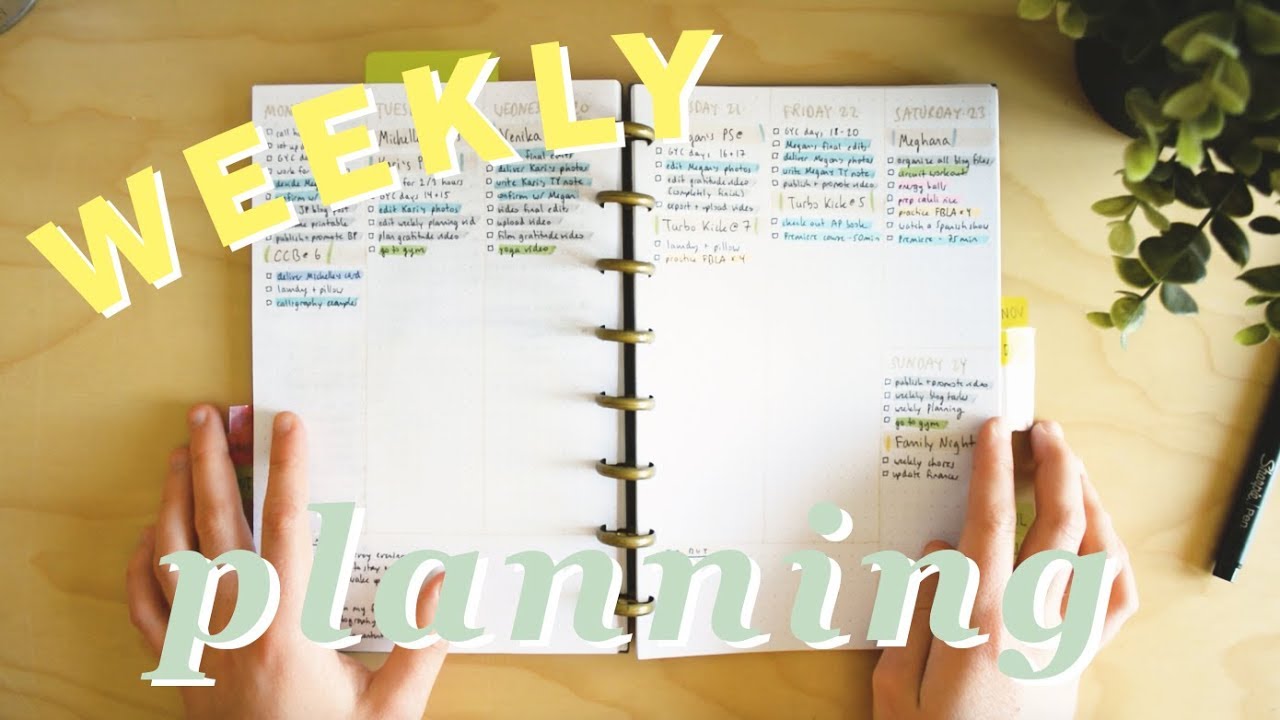 WEEKLY
planning
MON
call
set up
GYC d
work for
confirm w
JP blog post
me printable
publish + promote BP
CCB @ 6
deliver Michelle's card
laundry + pillow
calligraphy example
TUES
Michell
for 2/3 hours
GYC days 14+15
edit Kari's photos
edit weekly planning vid
plan gratitude video
go to gym
WEDNE 20
final edits
deliver Kari's photos
write Kari's TY note
confirm w/ Megan
video final edits
upload video
film gratitude video
yoga video
SDAY 21
egan's PS @
GYC days 16+17
edit Megan's photos
edit gratitude video
(completely finish)
export + upload video
Turbo Kick @ 7
laundry + pillow
practice FBLA x 4
FRIDAY 22
GYC days 18-20
Megan's final edits
deliver Megan's photos
write Megan's TY note
publish + promote video
Turbo Kick @ 5
check out AP book
Premiere course - 50 min
SATURDAY 23
Meghana
organize all blog files
circuit workout
energy balls
prep cauli rice
practice FBLA x 4
watch a Spanish show
Premiere - 75 min
SUNDAY 24
publish + promote video
weekly blog tasks
weekly planning
go to gym
Family Night
weekly chores
update finances
NOV
Sharpie Pen